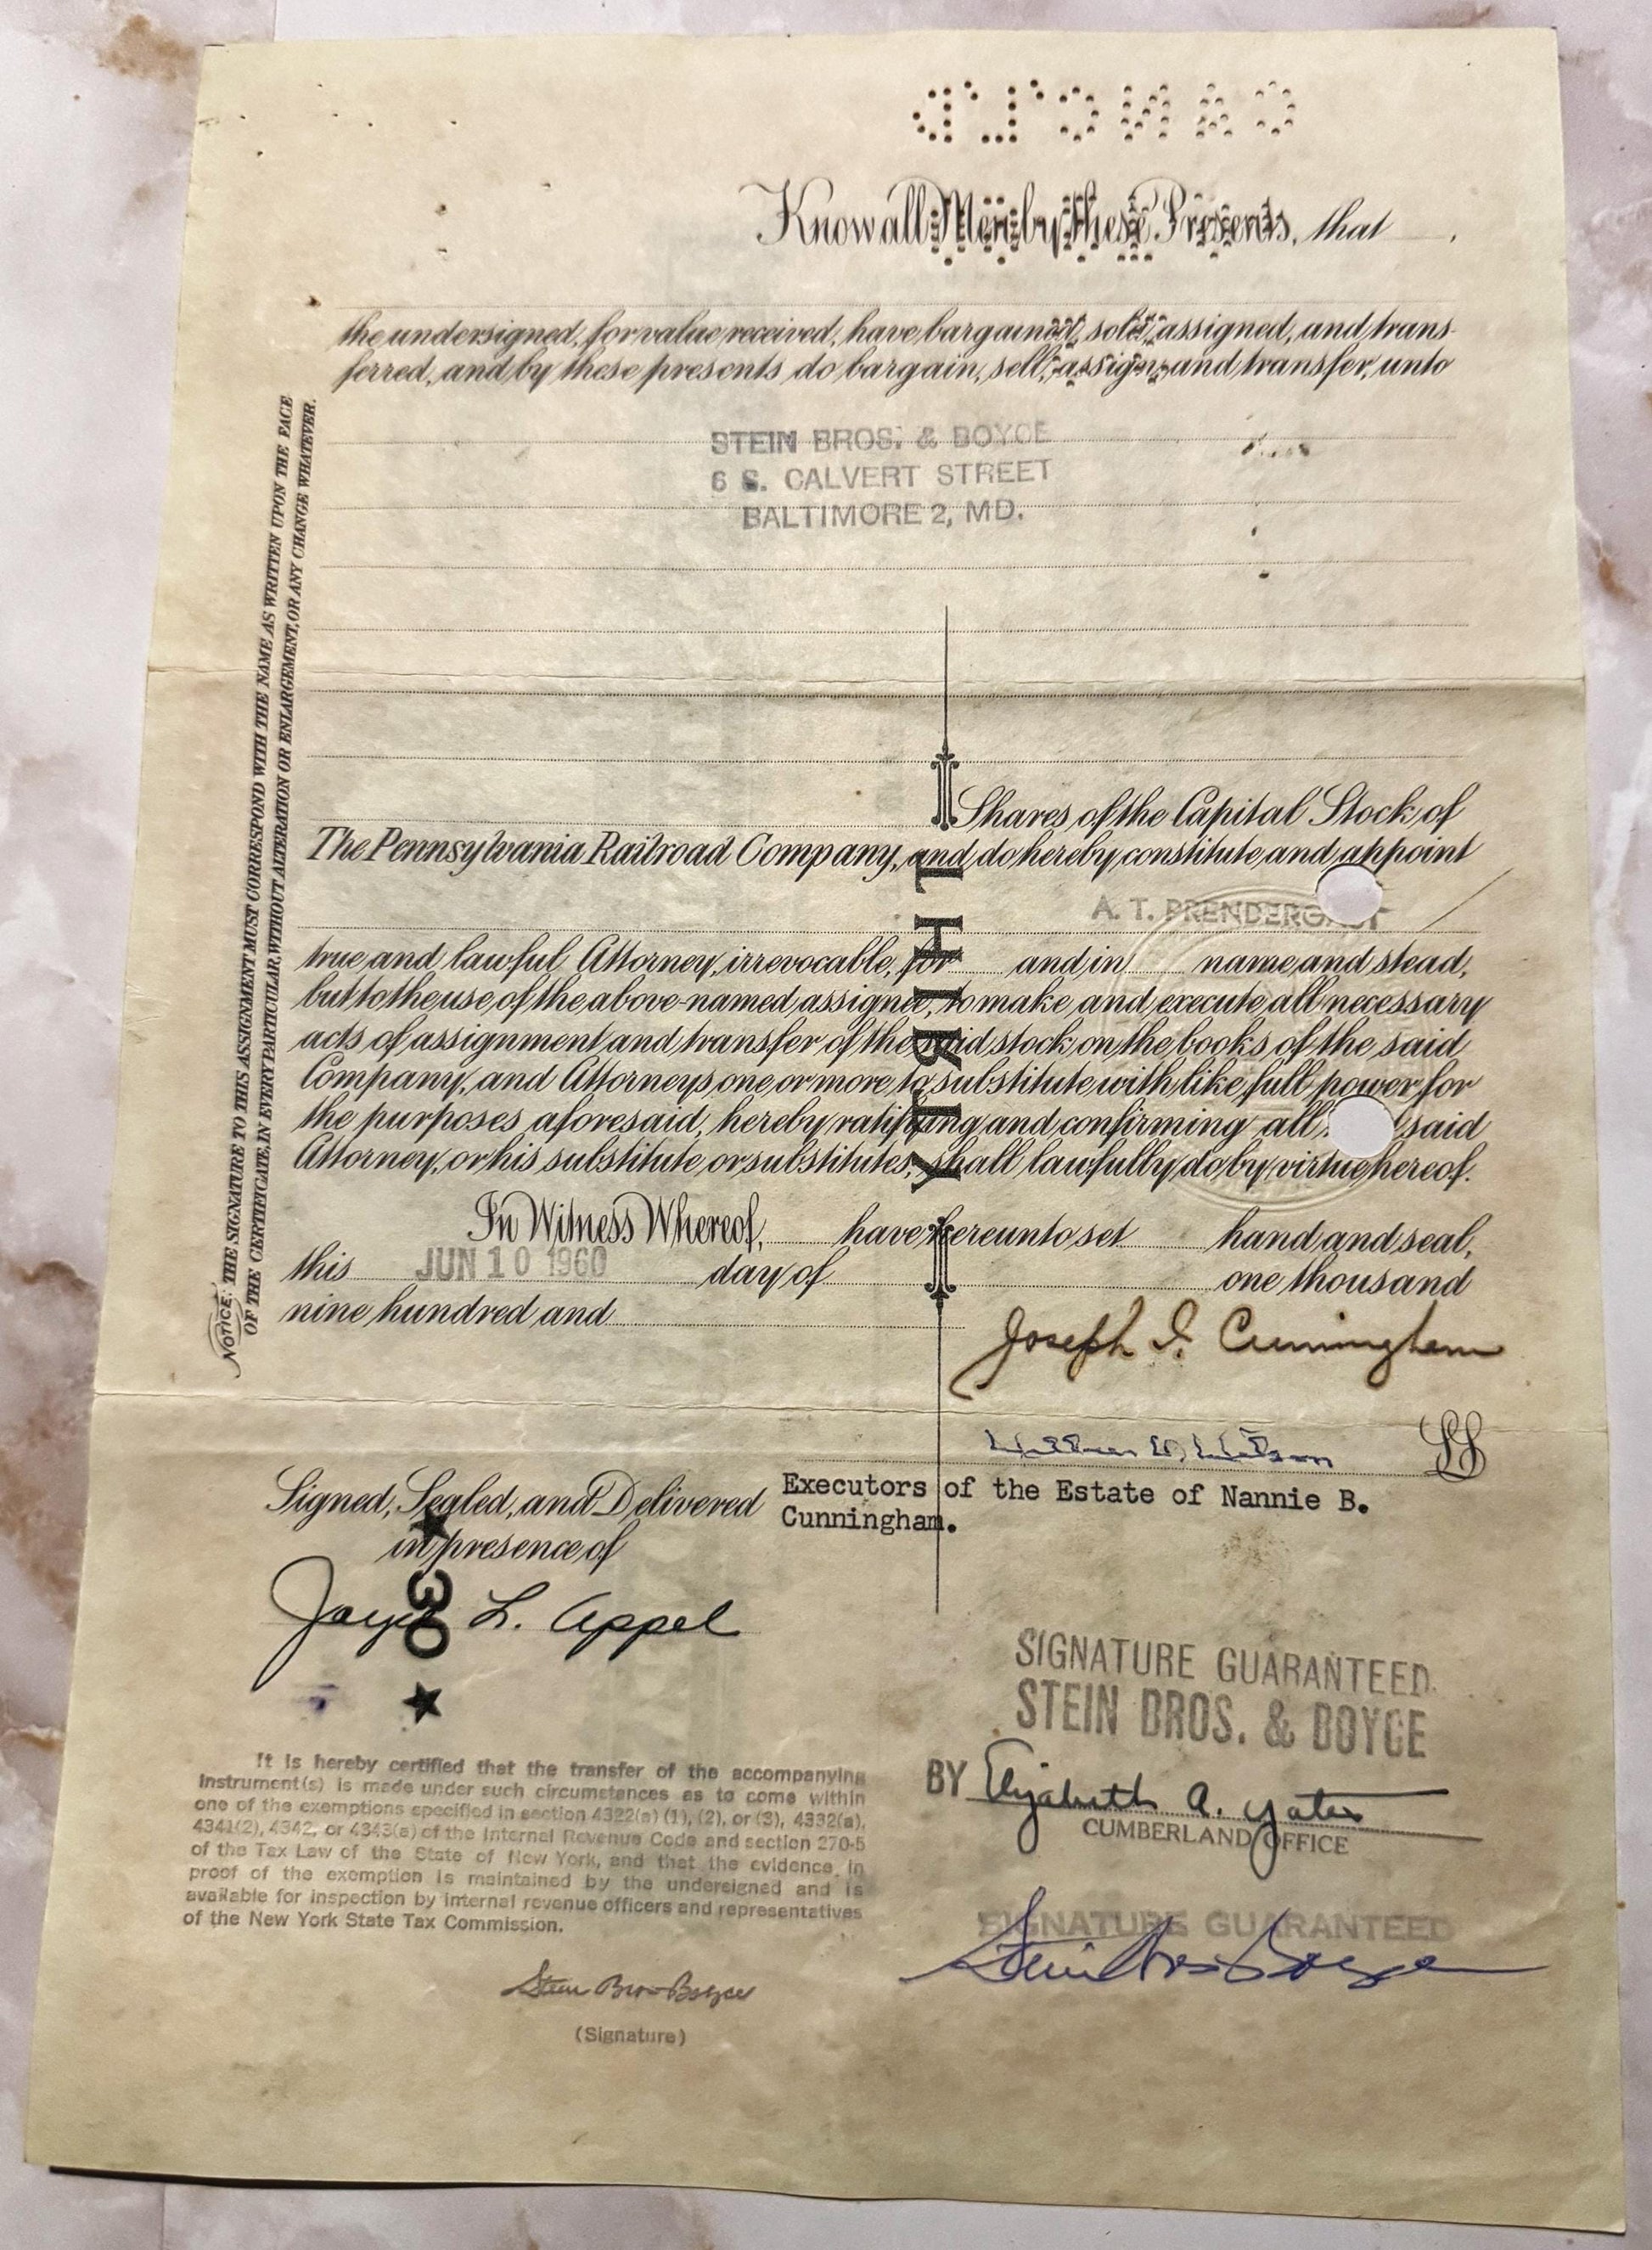 CANC'L'D
Know all Men by these Presents, that
the undersigned, for value received, have bargained, sold, assigned, and trans-
ferred, and by these presents do bargain, sell, assign and transfer, unto
STEIN BROS. & BOYCE
6 S. CALVERT STREET
BALTIMORE 2, MD.
Shares of the Capital Stock of
The Pennsylvania Railroad Company, and do hereby constitute and appoint
A. T. PRENDERGAST
true and lawful Attorney, irrevocable, for and in name and stead,
but to the use of the above-named assignee, to make and execute all necessary
acts of assignment and transfer of the said stock on the books of the said
Company, and Attorneys one or more to substitute with like full power for
the purposes aforesaid, hereby ratifying and confirming all said
Attorney, or his substitute or substitutes, shall lawfully do by virtue hereof.
In Witness Whereof, have hereunto set hand and seal,
this JUN 10 1960 day of one thousand
nine hundred and
THIRTY
NOTICE: THE SIGNATURE TO THIS ASSIGNMENT MUST CORRESPOND WITH THE NAME AS WRITTEN UPON THE FACE
OF THE CERTIFICATE, IN EVERY PARTICULAR, WITHOUT ALTERATION OR ENLARGEMENT, OR ANY CHANGE WHATEVER.
Joseph I. Cunningham
LS
Executors of the Estate of Nannie B.
Cunningham.
Signed, Sealed, and Delivered
in presence of
★ 30 ★
L. Appel
SIGNATURE GUARANTEED
STEIN BROS. & BOYCE
BY Elizabeth A. Yates
CUMBERLAND OFFICE
SIGNATURE GUARANTEED
Stein Bros & Boyce
It is hereby certified that the transfer of the accompanying
instrument(s) is made under such circumstances as to come within
one of the exemptions specified in section 4322(a) (1), (2), or (3), 4332(a),
4341(2), 4342, or 4343(a) of the Internal Revenue Code and section 270-5
of the Tax Law of the State of New York, and that the evidence in
proof of the exemption is maintained by the undersigned and is
available for inspection by internal revenue officers and representatives
of the New York State Tax Commission.
Stein Bros Boyce
(Signature)